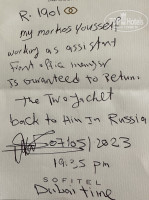 R. 1901
my markos youssef
working as assistant
first office manager
is guaranteed to Return
The Two Jacket
back to Him In Russia
07/03/2023
19:25 pm
SOFITEL
Dubai time